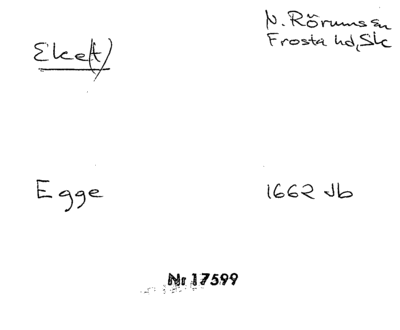 Eke(t)
N. Rörums sn
Frosta hd, Sk
Egge
1662 Jb
Nr 17599